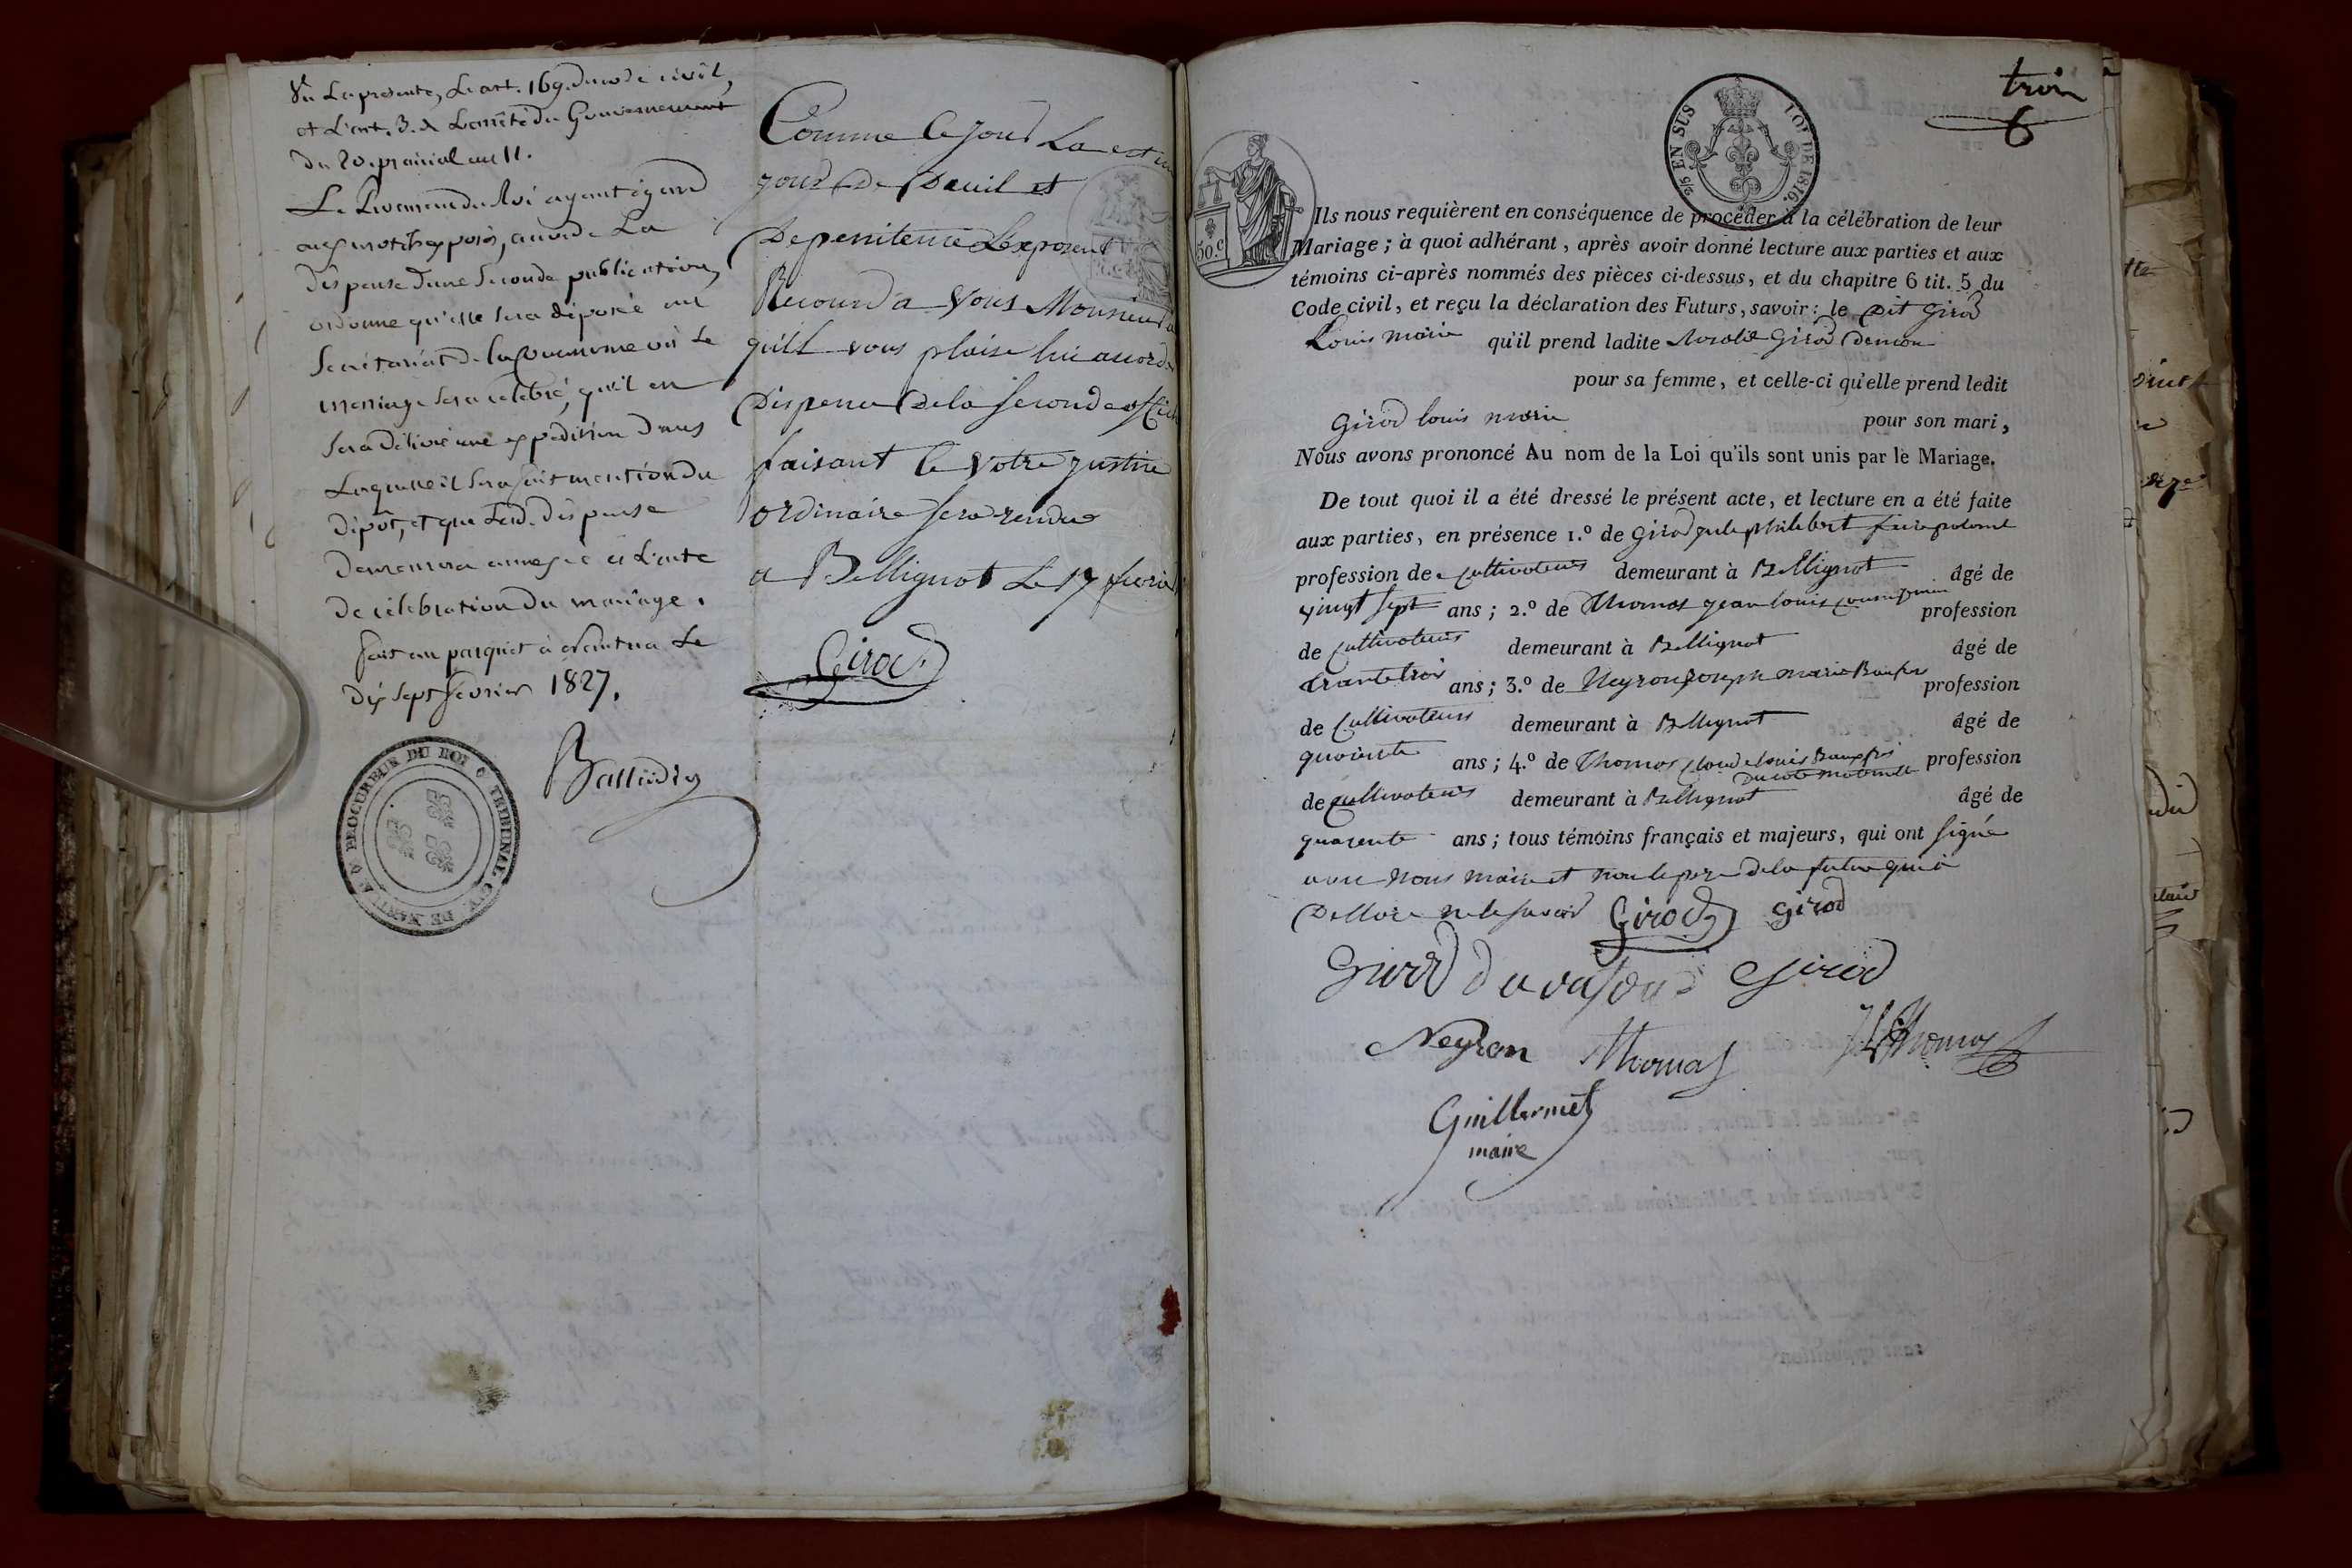 Vu la présente, l'art. 169 du code civil,
et l'art. 3. de l'arrêté du Gouvernement
du 20. prairial an 11.
Le Procureur du Roi ayant égard
aux motifs exposés, accorde la
dispense d'une seconde publication,
ordonne qu'elle sera déposée au
secrétariat de la commune où le
mariage sera célébré, qu'il en
sera délivré une expédition dans
laquelle il sera fait mention du
dépôt, et que lad. dispense
demeurera annexée à l'acte
de célébration du mariage.
fait au parquet à Nantua le
dix sept février 1827.
PROCUREUR DU ROI TRIBUNAL CIV. DE NANTUA
Comme ce jour La est un
jour de Deuil et
De penitence L'exposent
Recourd a Vous Monsieur a
qu'il vous plaise lui accord
Dispence De la seconde
faisant ce votre justice
ordinaire sera rendue
a Bellignat Le 17 fevrie
Girod
trois
6
2/5 EN SUS LOI DE 1816.
50.c
Ils nous requièrent en conséquence de procéder à la célébration de leur
Mariage ; à quoi adhérant, après avoir donné lecture aux parties et aux
témoins ci-après nommés des pièces ci-dessus, et du chapitre 6 tit. 5 du
Code civil, et reçu la déclaration des Futurs, savoir : le Dit Girod
Louis marie qu'il prend ladite Girod
pour sa femme, et celle-ci qu'elle prend ledit
Girod louis marie pour son mari,
Nous avons prononcé Au nom de la Loi qu'ils sont unis par le Mariage.
De tout quoi il a été dressé le présent acte, et lecture en a été faite
aux parties, en présence 1.º de Girod philibert
profession de cultivateur demeurant à Bellignat âgé de
vingt sept ans ; 2.º de Thomas jean louis cousin profession
de cultivateur demeurant à Bellignat âgé de
trante trois ans ; 3.º de Neyron joseph marie profession
de Cultivateur demeurant à Bellignat âgé de
quarente ans ; 4.º de Thomas Claude louis profession
Du cote maternelle
de cultivateur demeurant à Bellignat âgé de
quarente ans ; tous témoins français et majeurs, qui ont signé
avec nous maire et non le pere de la future qui a
Déllaré ne le savoir Girod Girod
Girod Girod
Neyron Thomas JL Thomas
Guillermet
maire